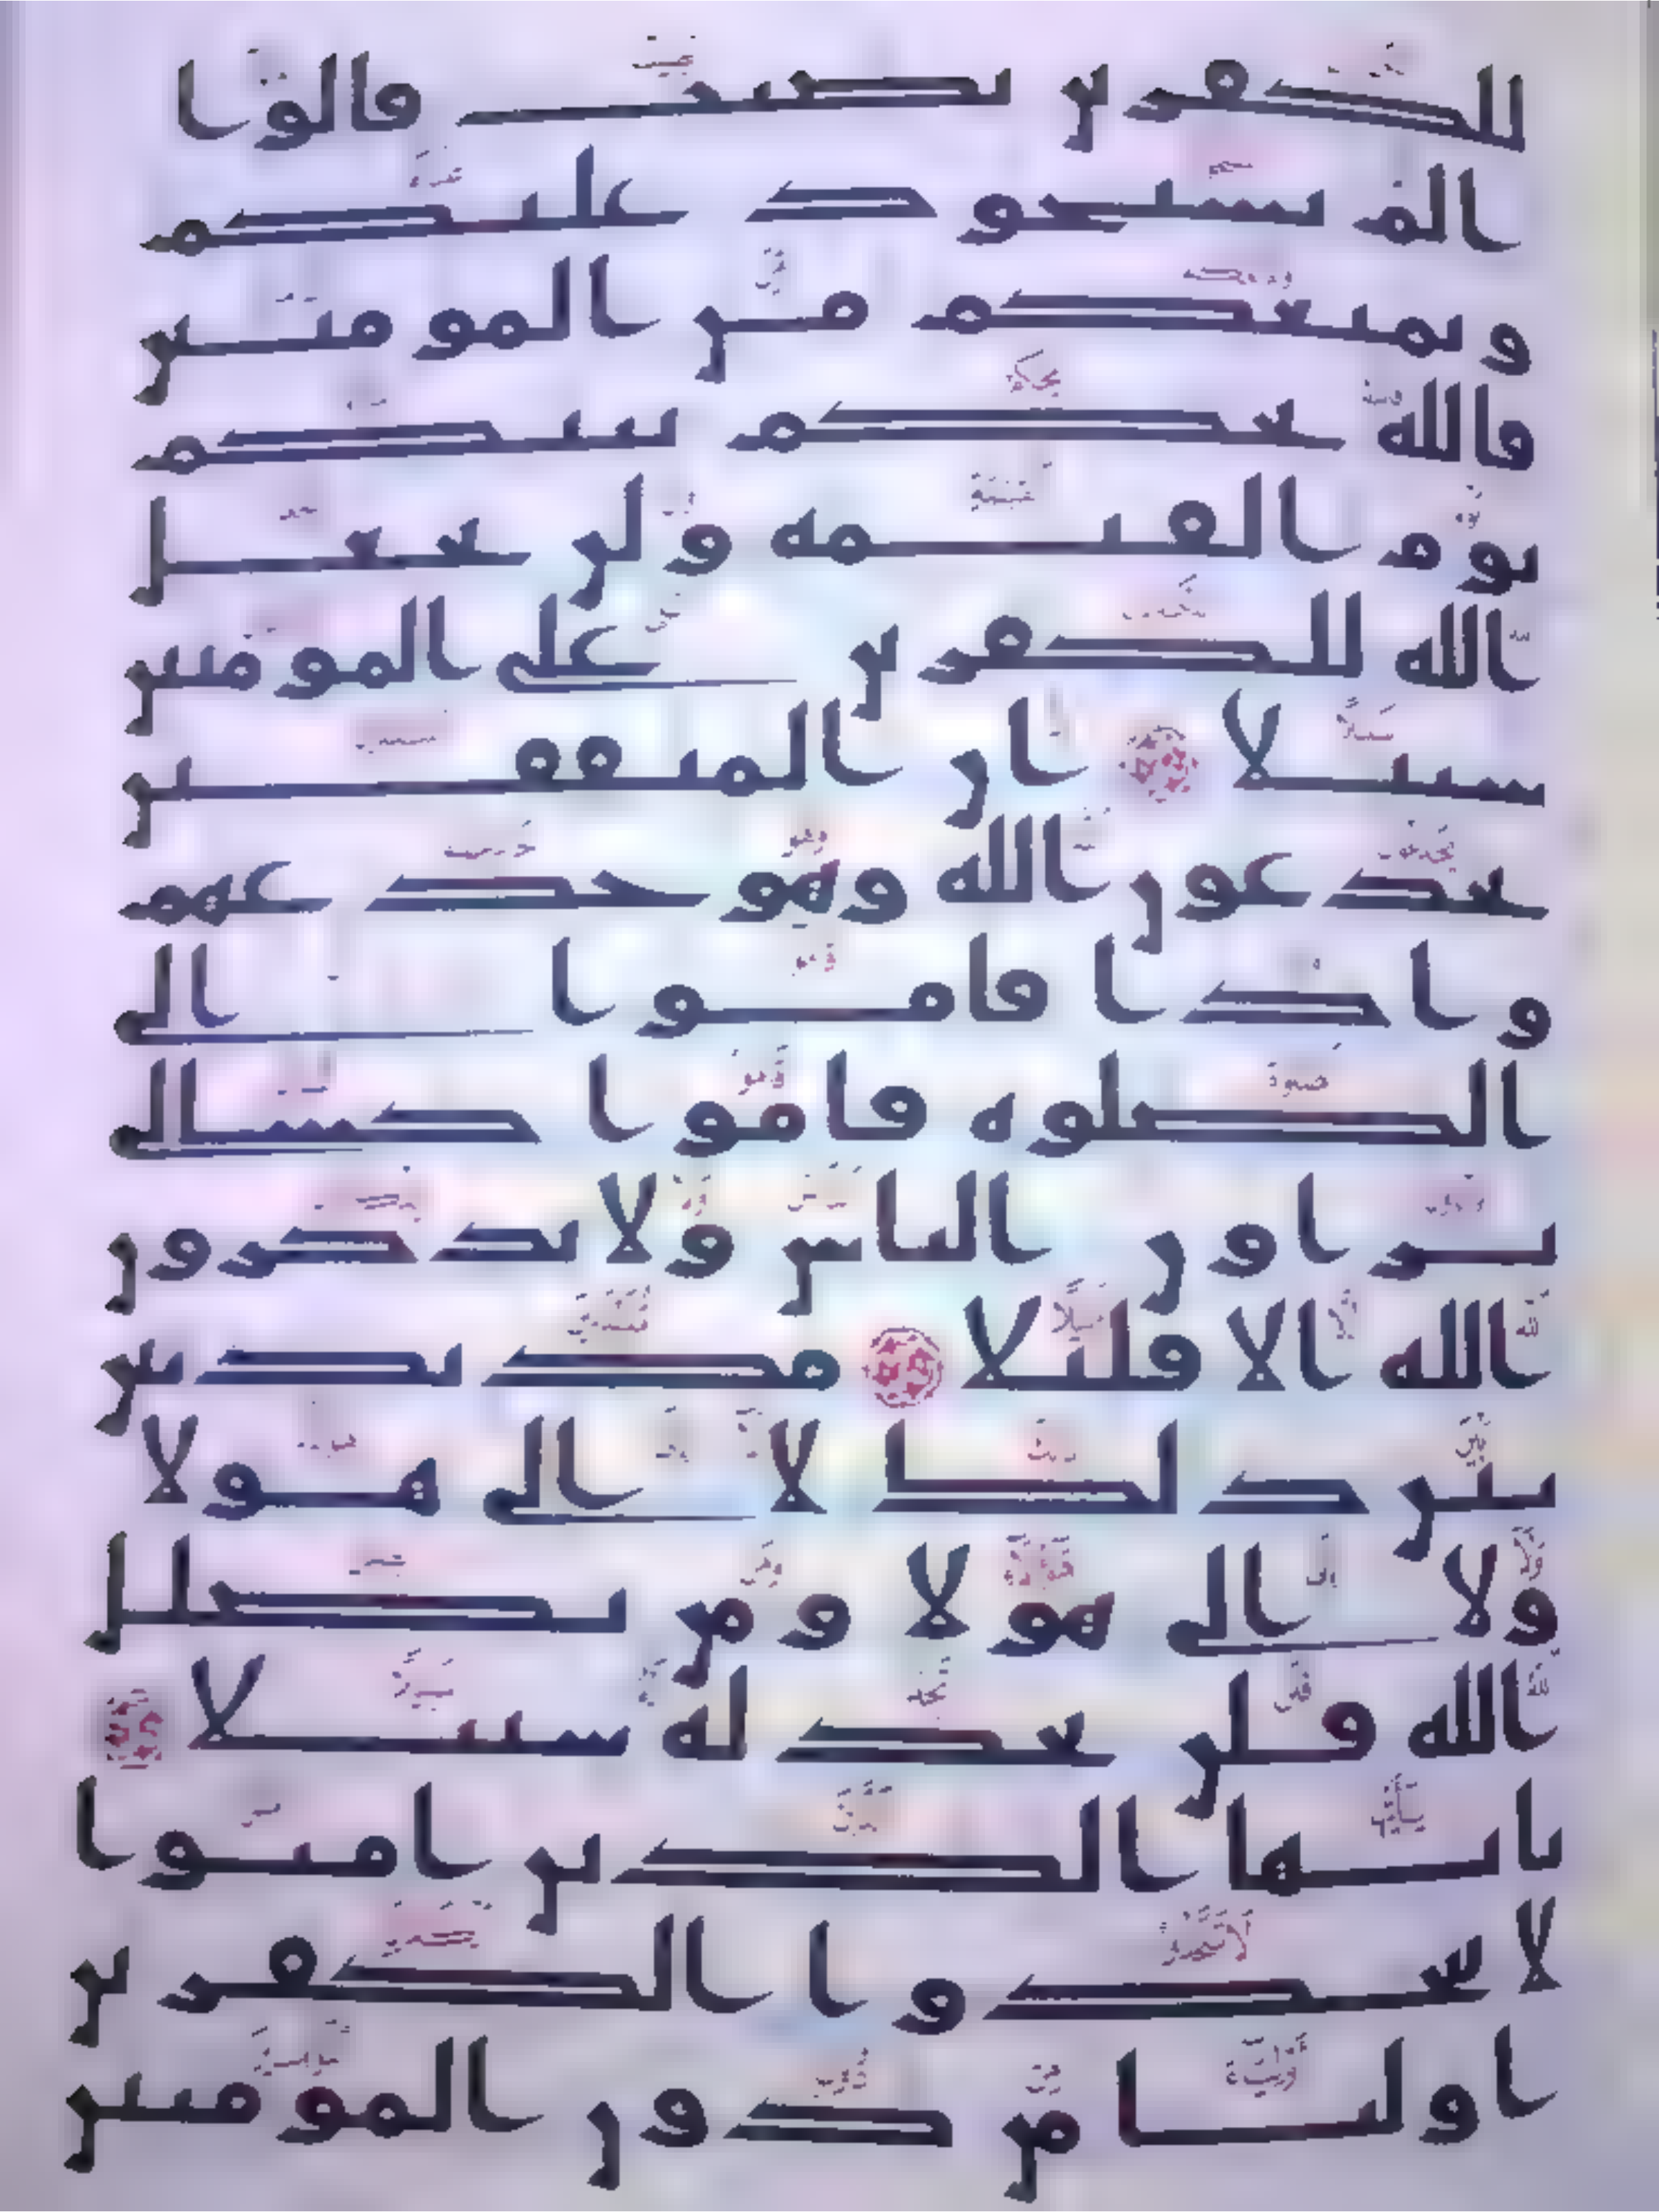 للكفرين نصيب قالوا
الم نستحوذ عليكم
ونمنعكم من المومنين
فالله يحكم بينكم
يوم القيمه ولن يجعل
الله للكفرين على المومنين
سبيلا ان المنفقين
يخدعون الله وهو خدعهم
واذا قاموا الى
الصلوه قاموا كسالى
يراون الناس ولا يذكرون
الله الا قليلا مذبذبين
بين ذلك لا الى هولا
ولا الى هولا ومن يضلل
الله فلن تجد له سبيلا
يايها الذين امنوا
لا تتخذوا الكفرين
اوليا من دون المومنين